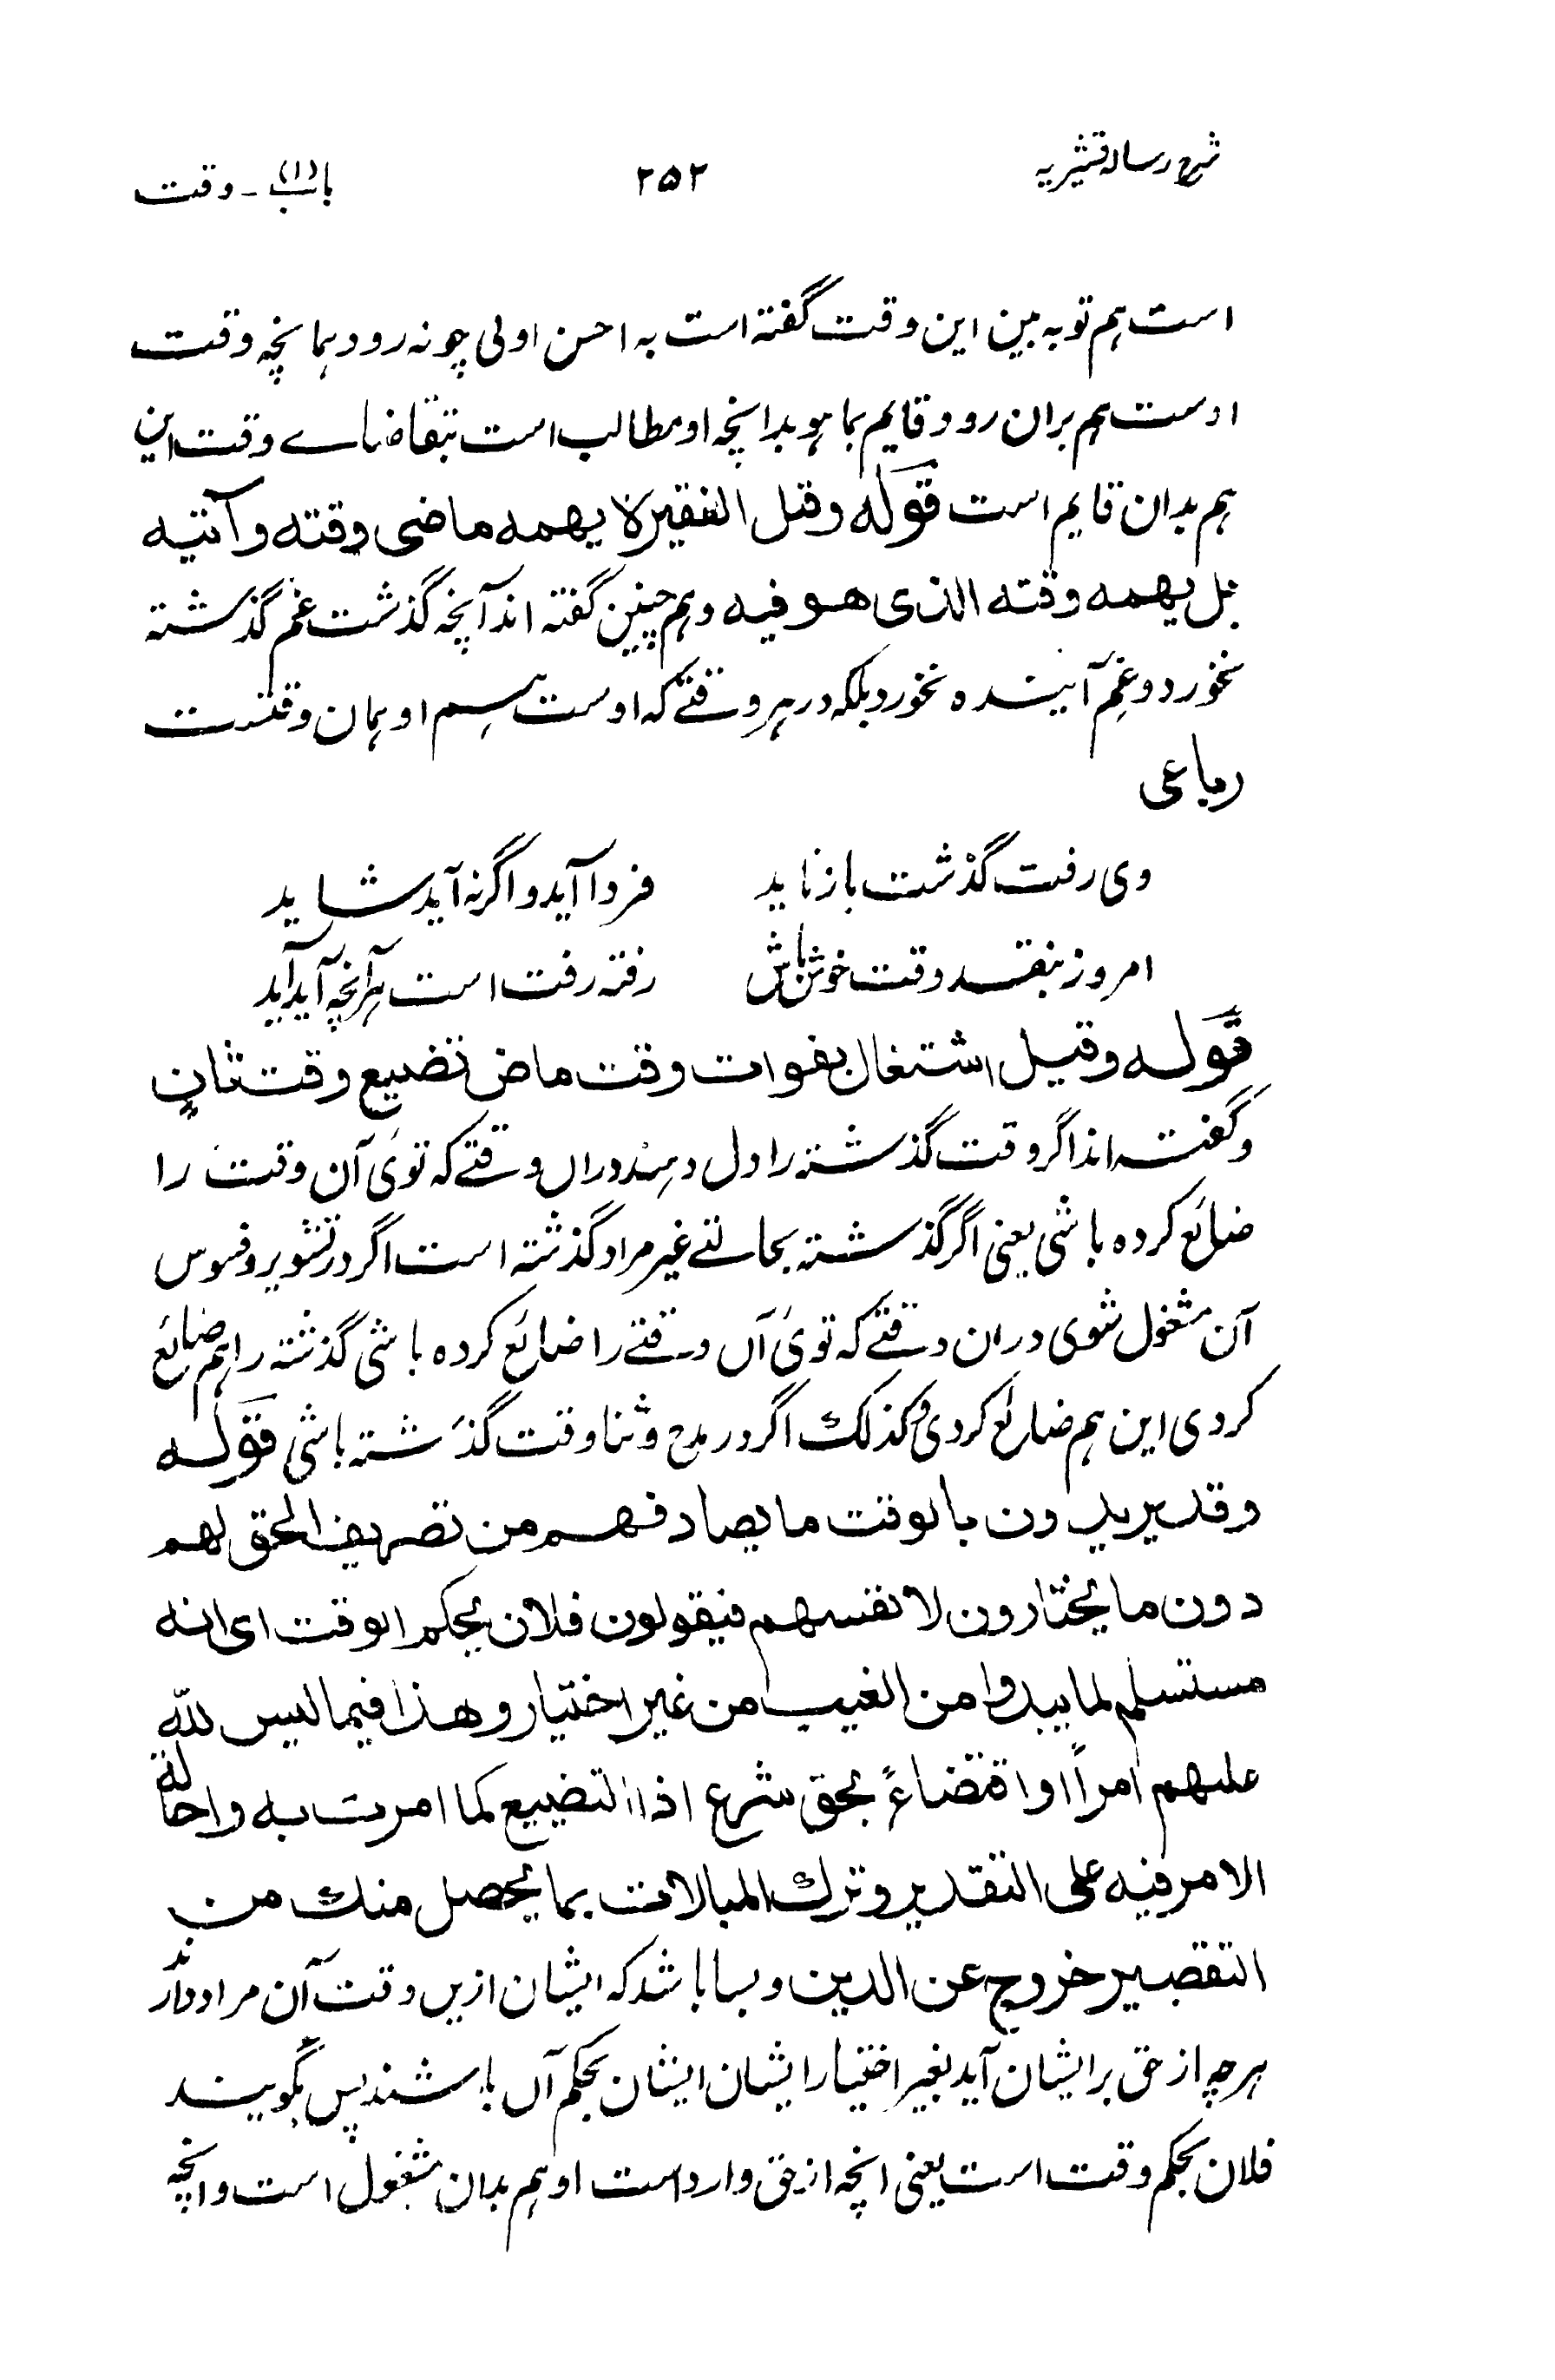 شرح رسالہ قشیریہ ۲۵۲ باب (۱) ـ وقت
است ہم توبہ بین این وقت گفتہ است بہ احسن اولی چونہ رود ہمانچہ وقت
اوست ہم بران رود و قایم بما ہو بدانچہ او مطالب است بتقاضاے وقت این
ہم بدان قایم است قَوله وقیل الفقیر لا یهمه ماضی وقته وآتیه
بل یهمه وقته الذی هو فیه وہم چنین گفتہ اند آنچہ گذشت غم گذشتہ
نخورد و غم آیندہ نخورد بلکہ در ہر وقتے کہ اوست ہم او ہمان وقتست
رباعی
دی رفت گذشت باز ناید فردا آید و اگر نہ آید شاید
امروز بنقد وقت خوش باش رفتہ رفت است ہرآنچہ آید آید
قَوله وقیل اشتغال بفوات وقت ماض تضییع وقت ثانٍ
وگفتہ اند اگر وقت گذشتہ را دل دہند دراں وقتے کہ توئی آن وقت را
ضائع کردہ باشی یعنی اگر گذشتہ بحالتے غیر مراد گذشتہ است اگر در تشویر و فسوس
آن مشغول شوی دران وقتے کہ توئی آں وقتے را ضائع کردہ باشی گذشتہ را ہم ضائع
کردی این ہم ضائع کردی وکذلک اگر در مدح و ثنا وقت گذشتہ باشی قَوله
وقد یریدون بالوقت ما یصادفهم من تصریف الحق لهم
دون ما یختارون لانفسهم فیقولون فلان بحکم الوقت ای انه
مستسلم لما یبدوا من الغیب من غیر اختیار وهذا فیما لیس لله
علیهم امراً او اقتضاءً بحق شرع اذ التضییع کما امرت به واحالة
الامر فیه علی التقدیر وترك المبالات بما یحصل منك من
التقصیر خروج عن الدین وبسا باشد کہ ایشان ازیں وقت آن مراد دارند
ہرچہ از حق بر ایشان آید بغیر اختیار ایشان ایشان بحکم آں باشند پس گویند
فلان بحکم وقت است یعنی انچہ از حق وارد است او ہم بدان مشغول است و انچہ